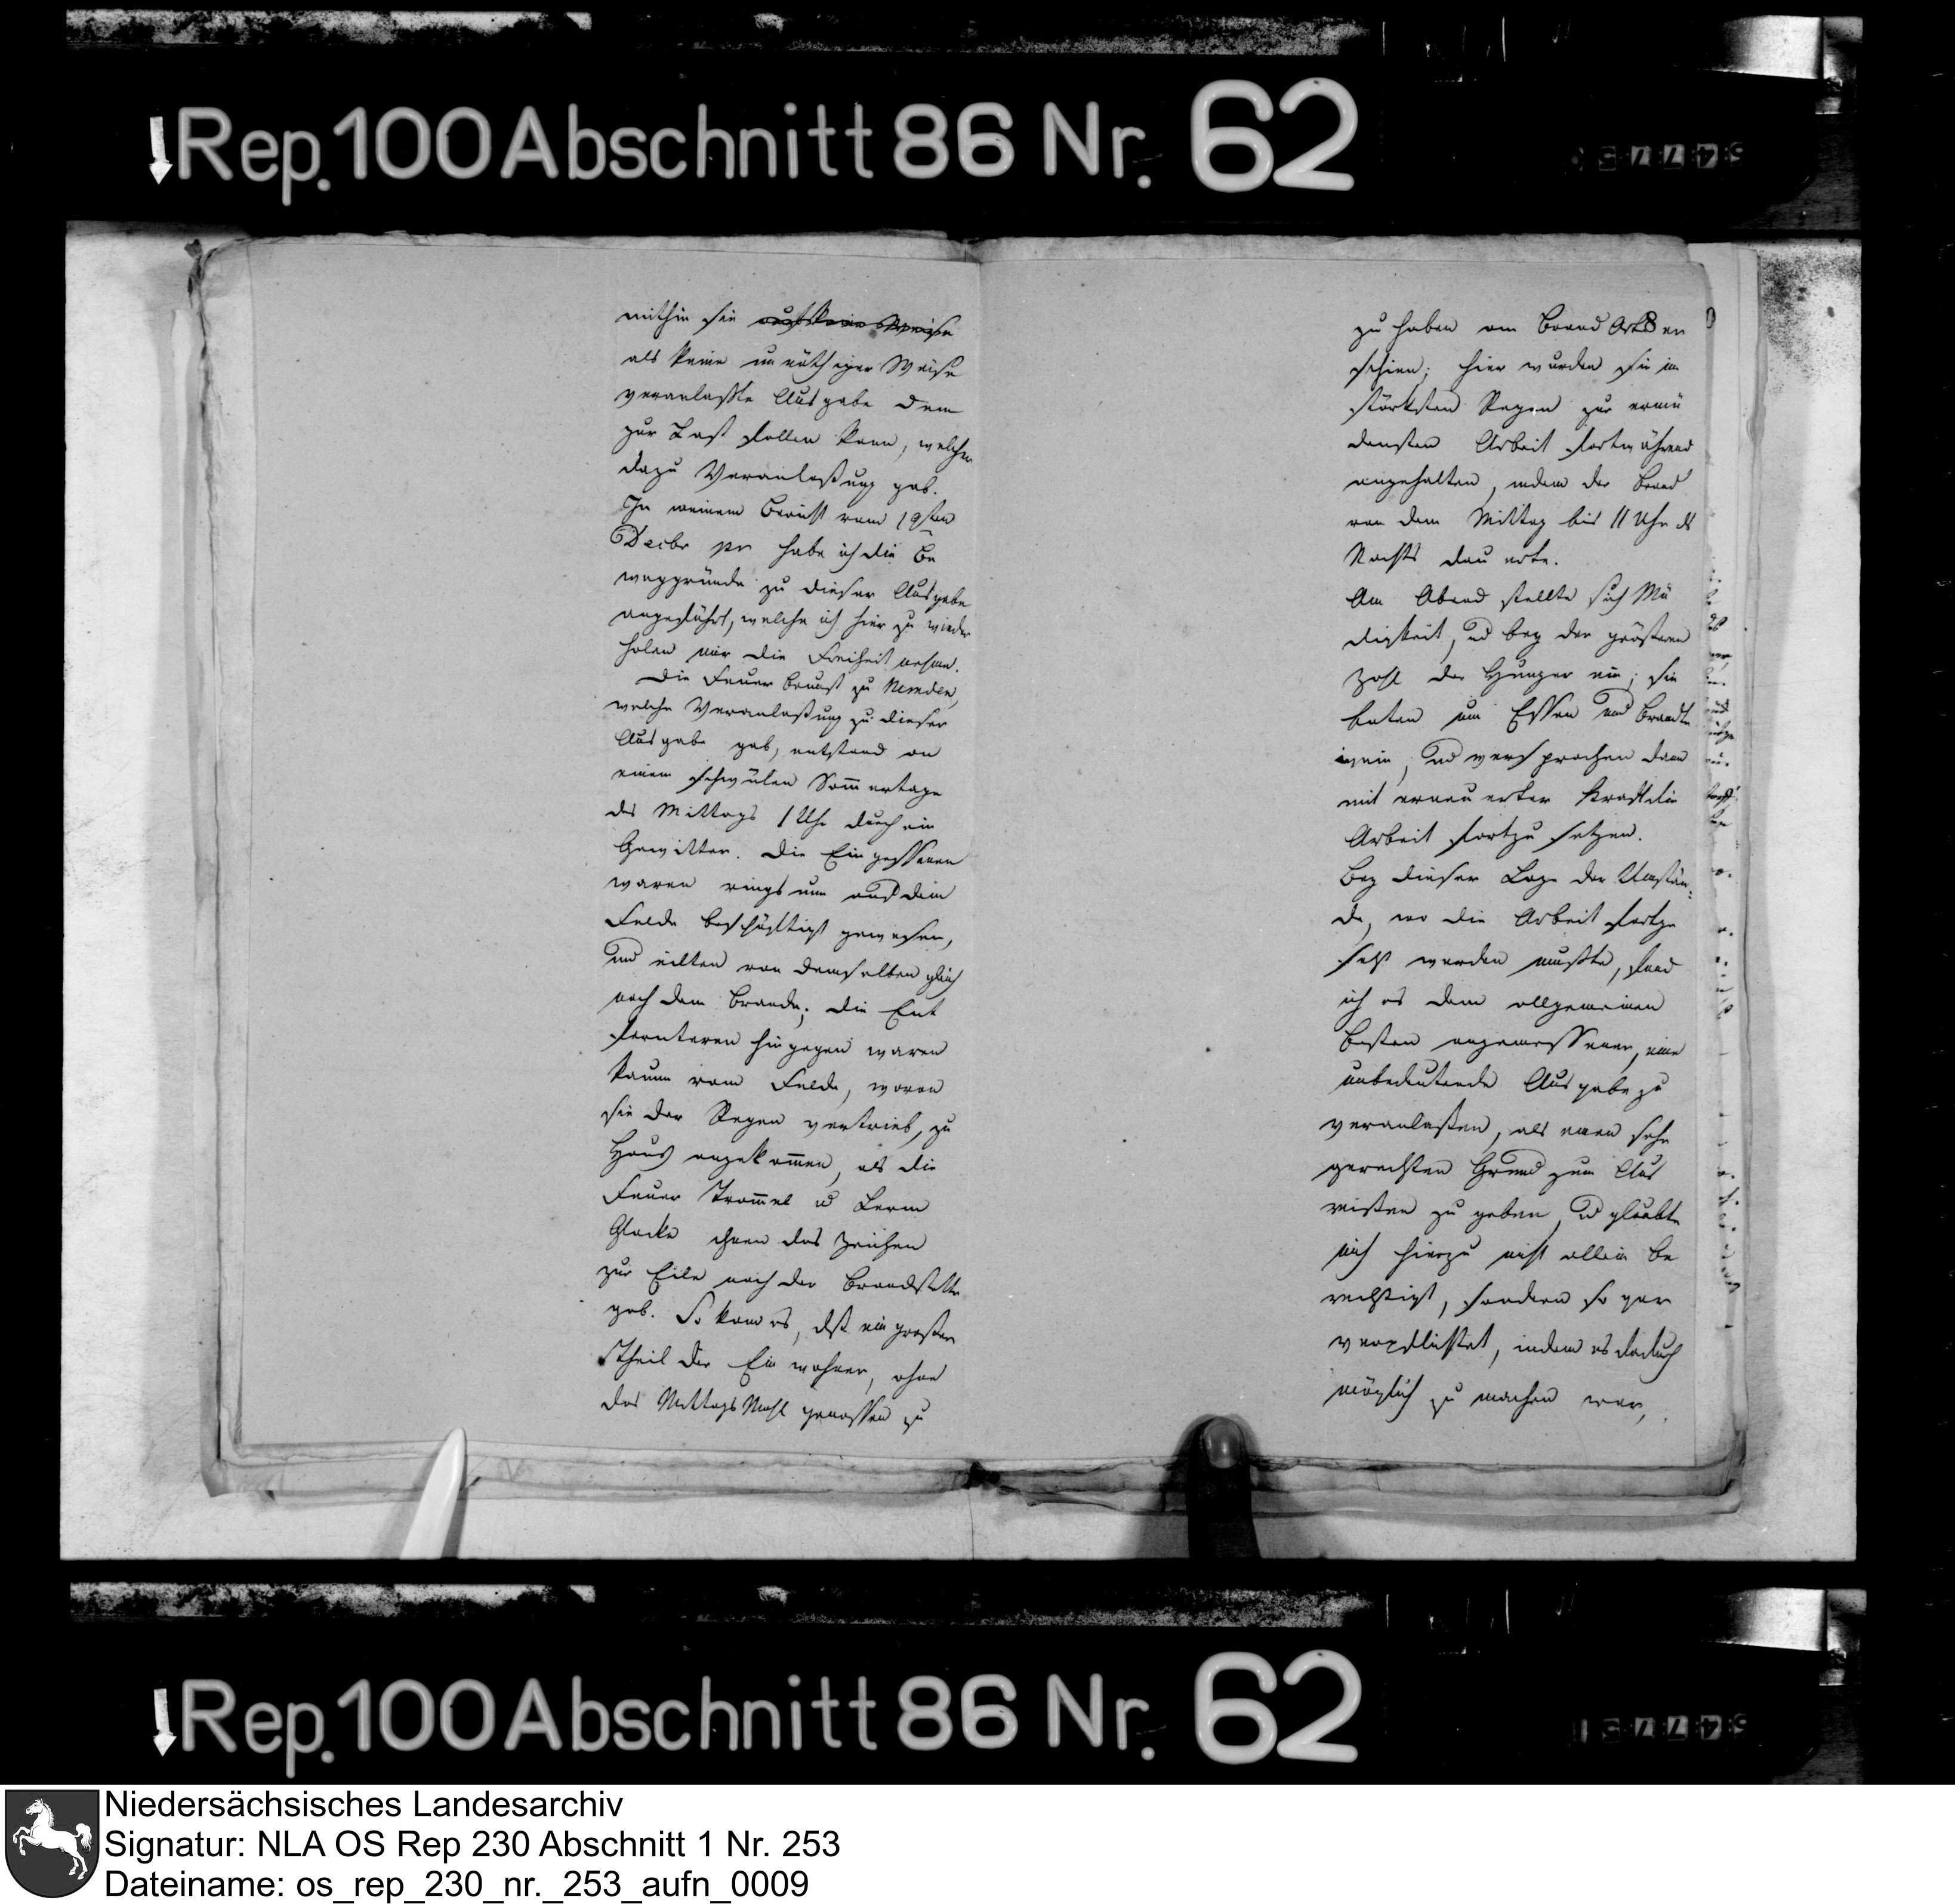 Rep. 100 Abschnitt 86 Nr. 62
mithin sie auf keine Weise
als keine unnöthiger Weise
veranlaßte Ausgabe dem
zur Last fallen kann, welcher
dazu Veranlaßung gab.
In meinem Bericht vom 19ten
Decbr pr habe ich die Be
weggründe zu dieser Ausgabe
angeführt, welche ich hier zu wieder
holen mir die Freiheit nehme.
Die Feuer Brunst zu Nemden,
welche Veranlaßung zu dieser
Ausgabe gab, entstand an
einem schwülen Som̄ertage
des Mittags 1 Uhr durch ein
Gewitter. Die Eingesessenen
waren rings um auf dem
Felde beschäftigt gewesen,
und eilten von demselben gleich
nach dem Brande; die Ent
fernteren hingegen waren
kaum vom Felde, wovon
sie der Regen vertrieb, zu
Haus angekom̄en, als die
Feuer Trom̄el u Lerm
Glocke ihnen das Zeichen
zur Eile nach der Brandstelle
gab. So kam es, daß ein großer
Theil der Einwohner, ohne
das Mittags Mahl genossen zu
zu haben am Brand Orte er
schien; hier wurden sie im
stärksten Regen zur ermü
densten Arbeit fortwährend
angehalten, indem der Brand
von dem Mittag bis 11 Uhr des
Nachts dauerte.
Am Abend stellte sich Mü
digkeit, und bey der größeren
Zahl der Hunger ein; sie
baten um Essen und Brandte
wein, und versprachen dann
mit erneuerter Kraft die
Arbeit fortzusetzen.
Bey dieser Lage der Umstän-
de, wo die Arbeit fortge
setzt werden mußte, fand
ich es dem allgemeinen
Besten angemessener, eine
unbedeutende Ausgabe zu
veranlaßen, als einen sehr
gerechten Grund zum Aus
reißen zu geben, und glaubte
mich hierzu nicht allein be
rechtigt, sondern so gar
verpflichtet, indem es dadurch
möglich zu machen war,
Rep. 100 Abschnitt 86 Nr. 62
Niedersächsisches Landesarchiv
Signatur: NLA OS Rep 230 Abschnitt 1 Nr. 253
Dateiname: os_rep_230_nr._253_aufn_0009